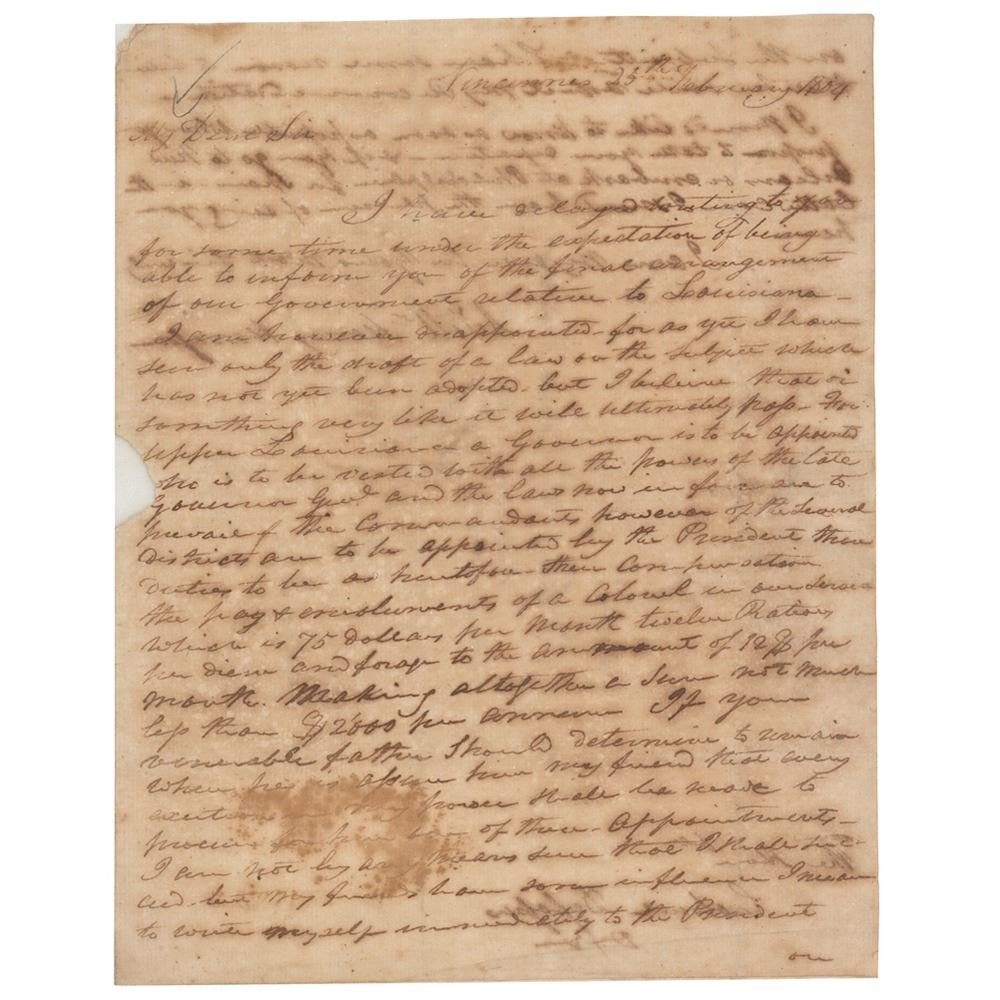 Vincennes 25th February 1804
My Dear Sir
I have delayed writing to you
for some time under the expectation of being
able to inform you of the final arrangement
of our Government relative to Louisiana -
I am however disappointed - for as yet I have
seen only the draft of a law on the subject which
has not yet been adopted - but I believe that or
something very like it will ultimately pass - For
upper Louisiana a Governor is to be appointed
who is to be vested with all the powers of the late
Governor Genl and the laws now in force are to
prevail & the Commandants however of the several
districts are to be appointed by the President their
duties to be as heretofore - their Compensation
the pay & emoluments of a Colonel in our service
which is 75 dollars per Month twelve Rations
per diem and forage to the amount of 12$ per
month. Making altogether a sum not much
less than $1200 per annum If your
venerable father should determine to remain
where he is assure him my friend that every
exertion in my power shall be made to
procure for him one of these - Appointments -
I am not by any means sure that I shall suc-
ceed - but my friends have some influence I mean
to write myself immediately to the President
on